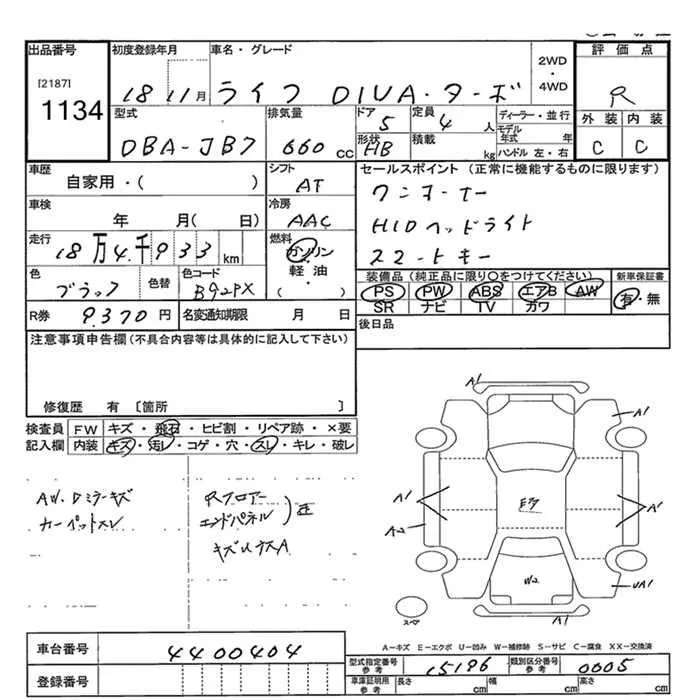 出品番号 初度登録年月 車名・グレード 評価点
[2187] 1134 18 11月 ライフ DIVA・ターボ 2WD・4WD R
型式 排気量 ドア 定員 ディーラー・並行 外装 内装
DBA-JB7 660cc 5 4人 モデル年式 年 C C
形状 HB 積載 kg ハンドル 左・右
車歴 シフト セールスポイント (正常に機能するものに限ります)
自家用・( ) AT ワンオーナー
車検 冷房
年 月( 日) AAC HIDヘッドライト
走行 燃料
18万4千933km ガソリン・軽油・( ) スマートキー
色 色替 色コード 装備品(純正品に限り○をつけてください) 新車保証書
ブラック B92PX PS PW ABS エアB AW 有・無
SR ナビ TV ガワ
R券 9,370円 名変通知期限 月 日 後日品
注意事項申告欄(不具合内容等は具体的に記入して下さい)
修復歴 有 〔箇所 〕
検査員 FW キズ・飛石・ヒビ割・リペア跡・×要
記入欄 内装 キズ・汚レ・コゲ・穴・スレ・キレ・破レ
AW.Dミラーキズ Rフロアー
カーペットスレ エンドパネル
A1
A1
A1 A1
A2
W2
UA1
スペア
A-キズ E-エクボ U-凹み W-補修跡 S-サビ C-腐食 XX-交換済
車台番号 4400404
型式指定番号 参考 15196 類別区分番号 参考 0005
登録番号 車庫証明用 参考 長さ cm 幅 cm 高さ cm